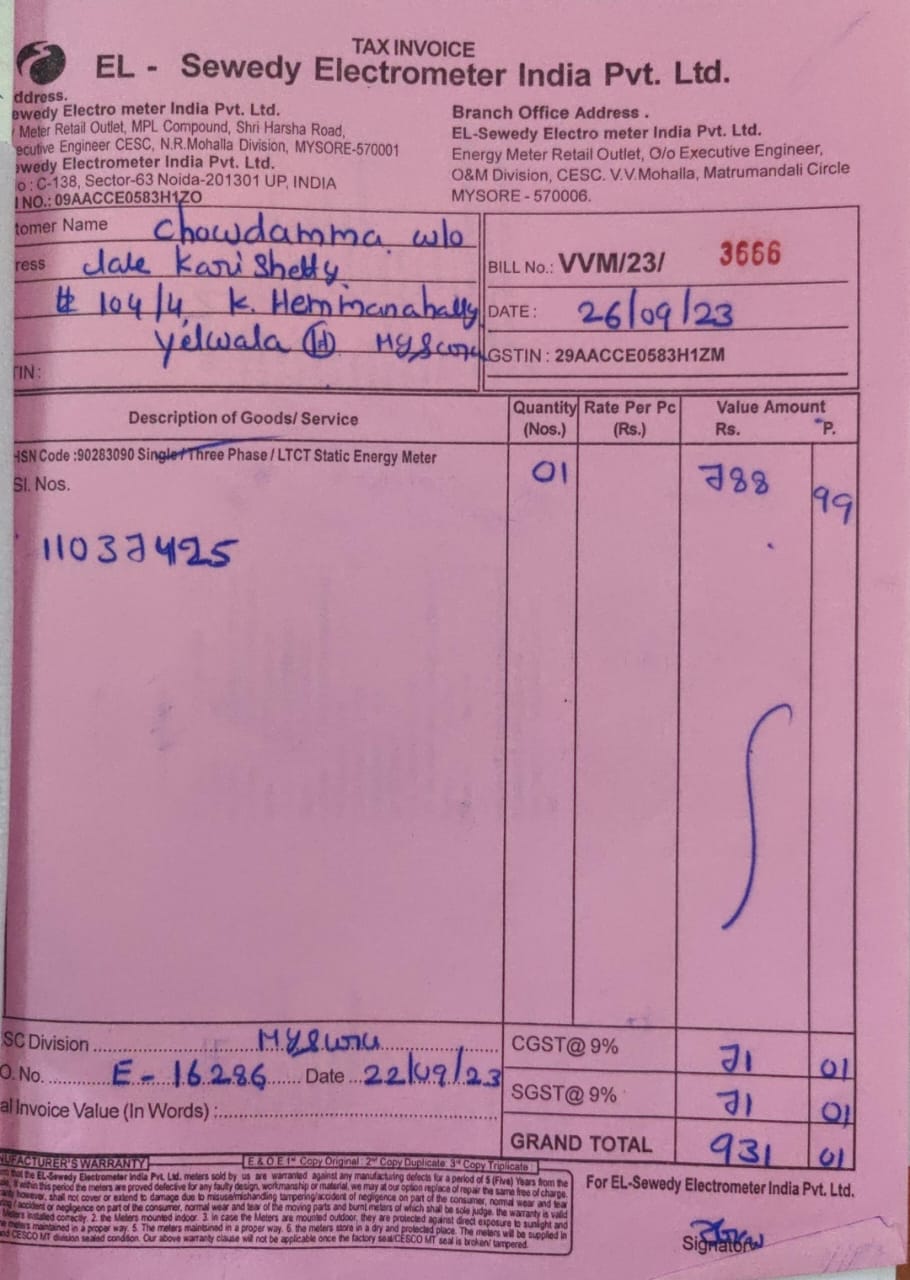 TAX INVOICE
EL - Sewedy Electrometer India Pvt. Ltd.
ddress.
ewedy Electro meter India Pvt. Ltd.
Meter Retail Outlet, MPL Compound, Shri Harsha Road,
ecutive Engineer CESC, N.R.Mohalla Division, MYSORE-570001
wedy Electrometer India Pvt. Ltd.
o : C-138, Sector-63 Noida-201301 UP, INDIA
NO.: 09AACCE0583H1ZO
Branch Office Address .
EL-Sewedy Electro meter India Pvt. Ltd.
Energy Meter Retail Outlet, O/o Executive Engineer,
O&M Division, CESC. V.V.Mohalla, Matrumandali Circle
MYSORE - 570006.
tomer Name Chowdamma w/o
ress late Kari Shetty
# 104/4, K. Hemmanahally
Yelwala (H) Mysore
TIN :
BILL No.: VVM/23/ 3666
DATE : 26/09/23
GSTIN : 29AACCE0583H1ZM
Description of Goods/ Service Quantity (Nos.) Rate Per Pc (Rs.) Value Amount Rs. P.
HSN Code :90283090 Single/Three Phase / LTCT Static Energy Meter 01 788 99
Sl. Nos.
11037425
SC Division Mysore
O. No. E - 16286 Date 22/09/23
al Invoice Value (In Words) :
CGST@ 9% 71 01
SGST@ 9% 71 01
GRAND TOTAL 931 01
NUFACTURER'S WARRANTY E & O E 1st Copy Original : 2nd Copy Duplicate: 3rd Copy Triplicate :
that the EL-Sewedy Electrometer India Pvt. Ltd. meters sold by us are warranted against any manufacturing defects for a period of 5 (Five) Years from the
If within this period the meters are proved defective for any faulty design, workmanship or material, we may at our option replace of repair the same free of charge.
however, shall not cover or extend to damage due to misuse/mishandling tampering/accident of negligence on part of the consumer, normal wear and tear
/ accident or negligence on part of the consumer, normal wear and tear of the moving parts and burnt meters of which shall be sole judge. the warranty is valid
Meters installed correctly. 2. the Meters mounted indoor. 3. in case the Meters are mounted outdoor, they are protected against direct exposure to sunlight and
meters maintained in a proper way. 5. The meters maintained in a proper way. 6. the meters store in a dry and protected place. The meters will be supplied in
CESCO MT division sealed condition. Our above warranty clause will not be applicable once the factory seal/CESCO MT seal is broken/ tampered.
For EL-Sewedy Electrometer India Pvt. Ltd.
Signatory